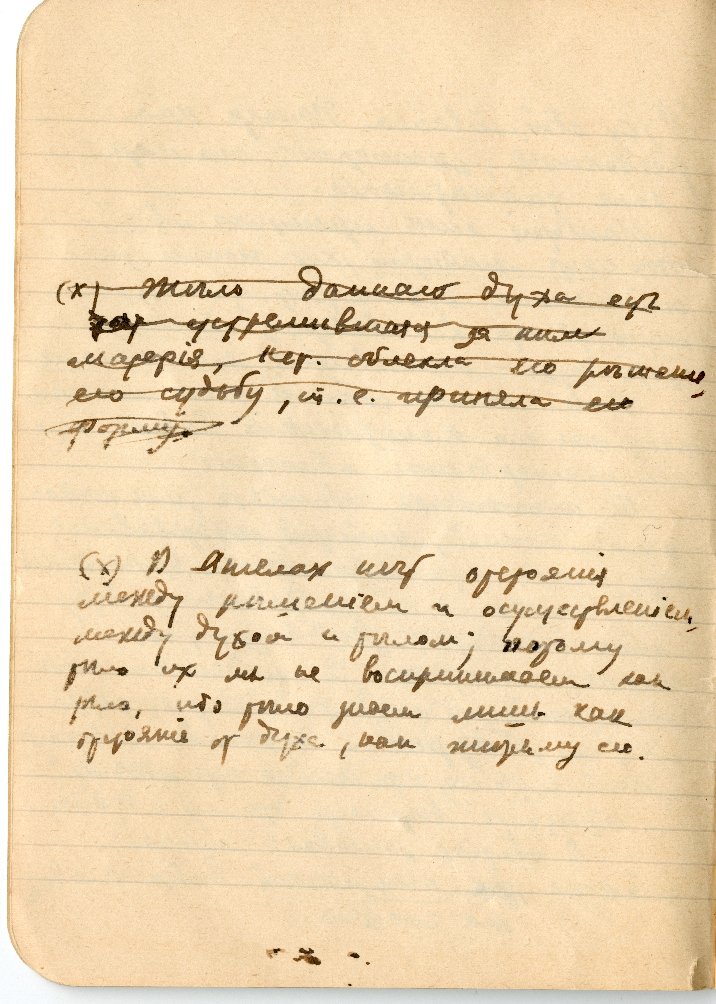 (х) Тѣло даннаго духа есть
устремившаяся за ним
матерія, кот. облекла его рѣшеніе,
его судьбу, т. е. приняла ея
форму.
(х) В Ангелах нѣт отстоянія
между рѣшеніем и осуществленіем,
между духом и тѣлом; потому
тѣло их мы не воспринимаем как
тѣло, ибо тѣло знаем лишь как
отстояніе от духа, как